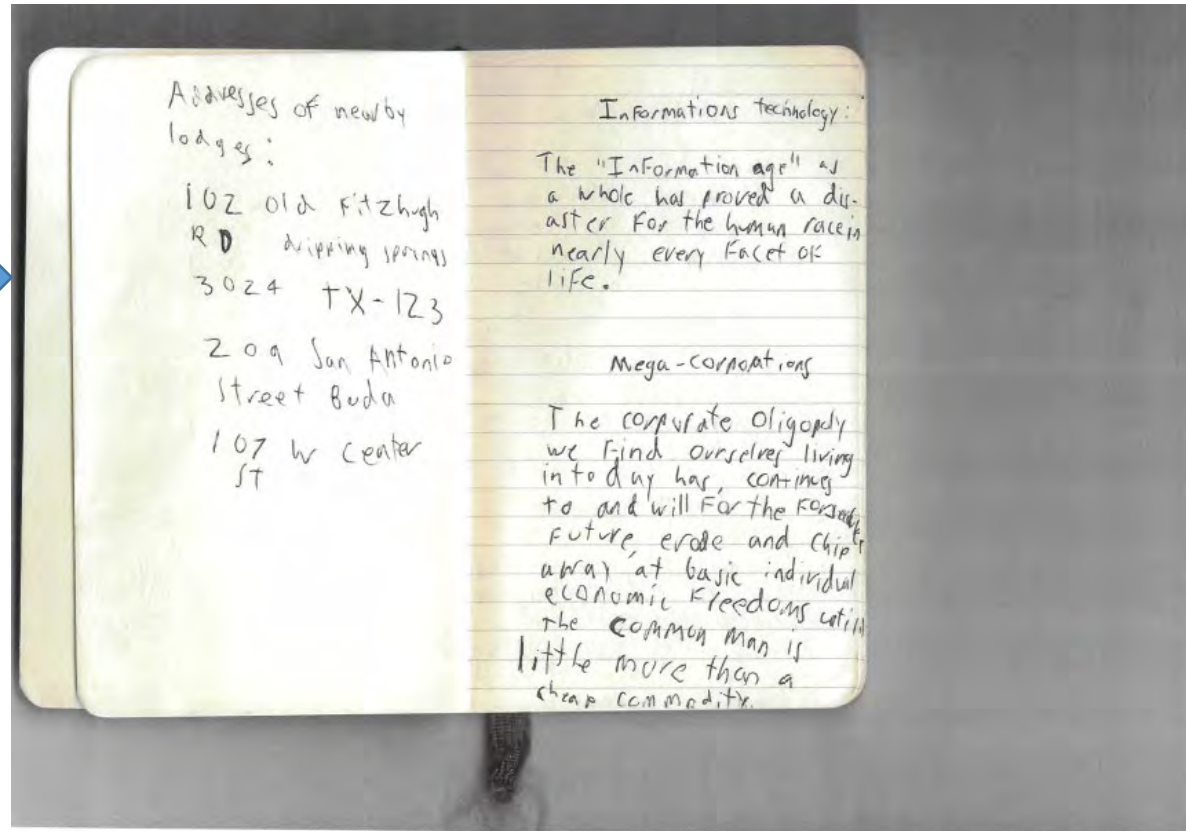 Addresses of nearby
lodges:
102 old Fitzhugh
RD dripping springs
3024 TX-123
209 San Antonio
Street Buda
107 W Center
ST
Informations technology:
The "Information age" as
a whole has proved a dis-
aster For the human race in
nearly every Facet of
life.
Mega-corporations
The corporate Oligopoly
we Find ourselves living
in today has, continues
to and will For the
Future, erode and chip
away at basic individual
economic Freedoms until
The common man is
little more than a
cheap commodity.